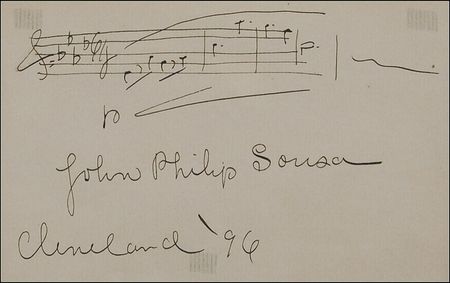 p
John Philip Sousa
Cleveland '96